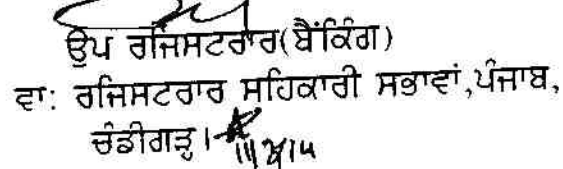 ਉਪ ਰਜਿਸਟਰਾਰ(ਬੈਂਕਿੰਗ)
ਵਾ: ਰਜਿਸਟਰਾਰ ਸਹਿਕਾਰੀ ਸਭਾਵਾਂ,ਪੰਜਾਬ,
ਚੰਡੀਗੜ੍ਹ।